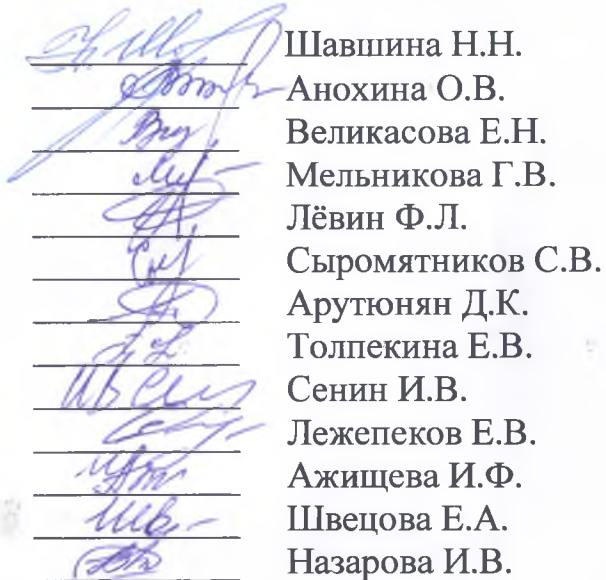 Шавшина Н.Н.
Анохина О.В.
Великасова Е.Н.
Мельникова Г.В.
Лёвин Ф.Л.
Сыромятников С.В.
Арутюнян Д.К.
Толпекина Е.В.
Сенин И.В.
Лежепеков Е.В.
Ажищева И.Ф.
Швецова Е.А.
Назарова И.В.